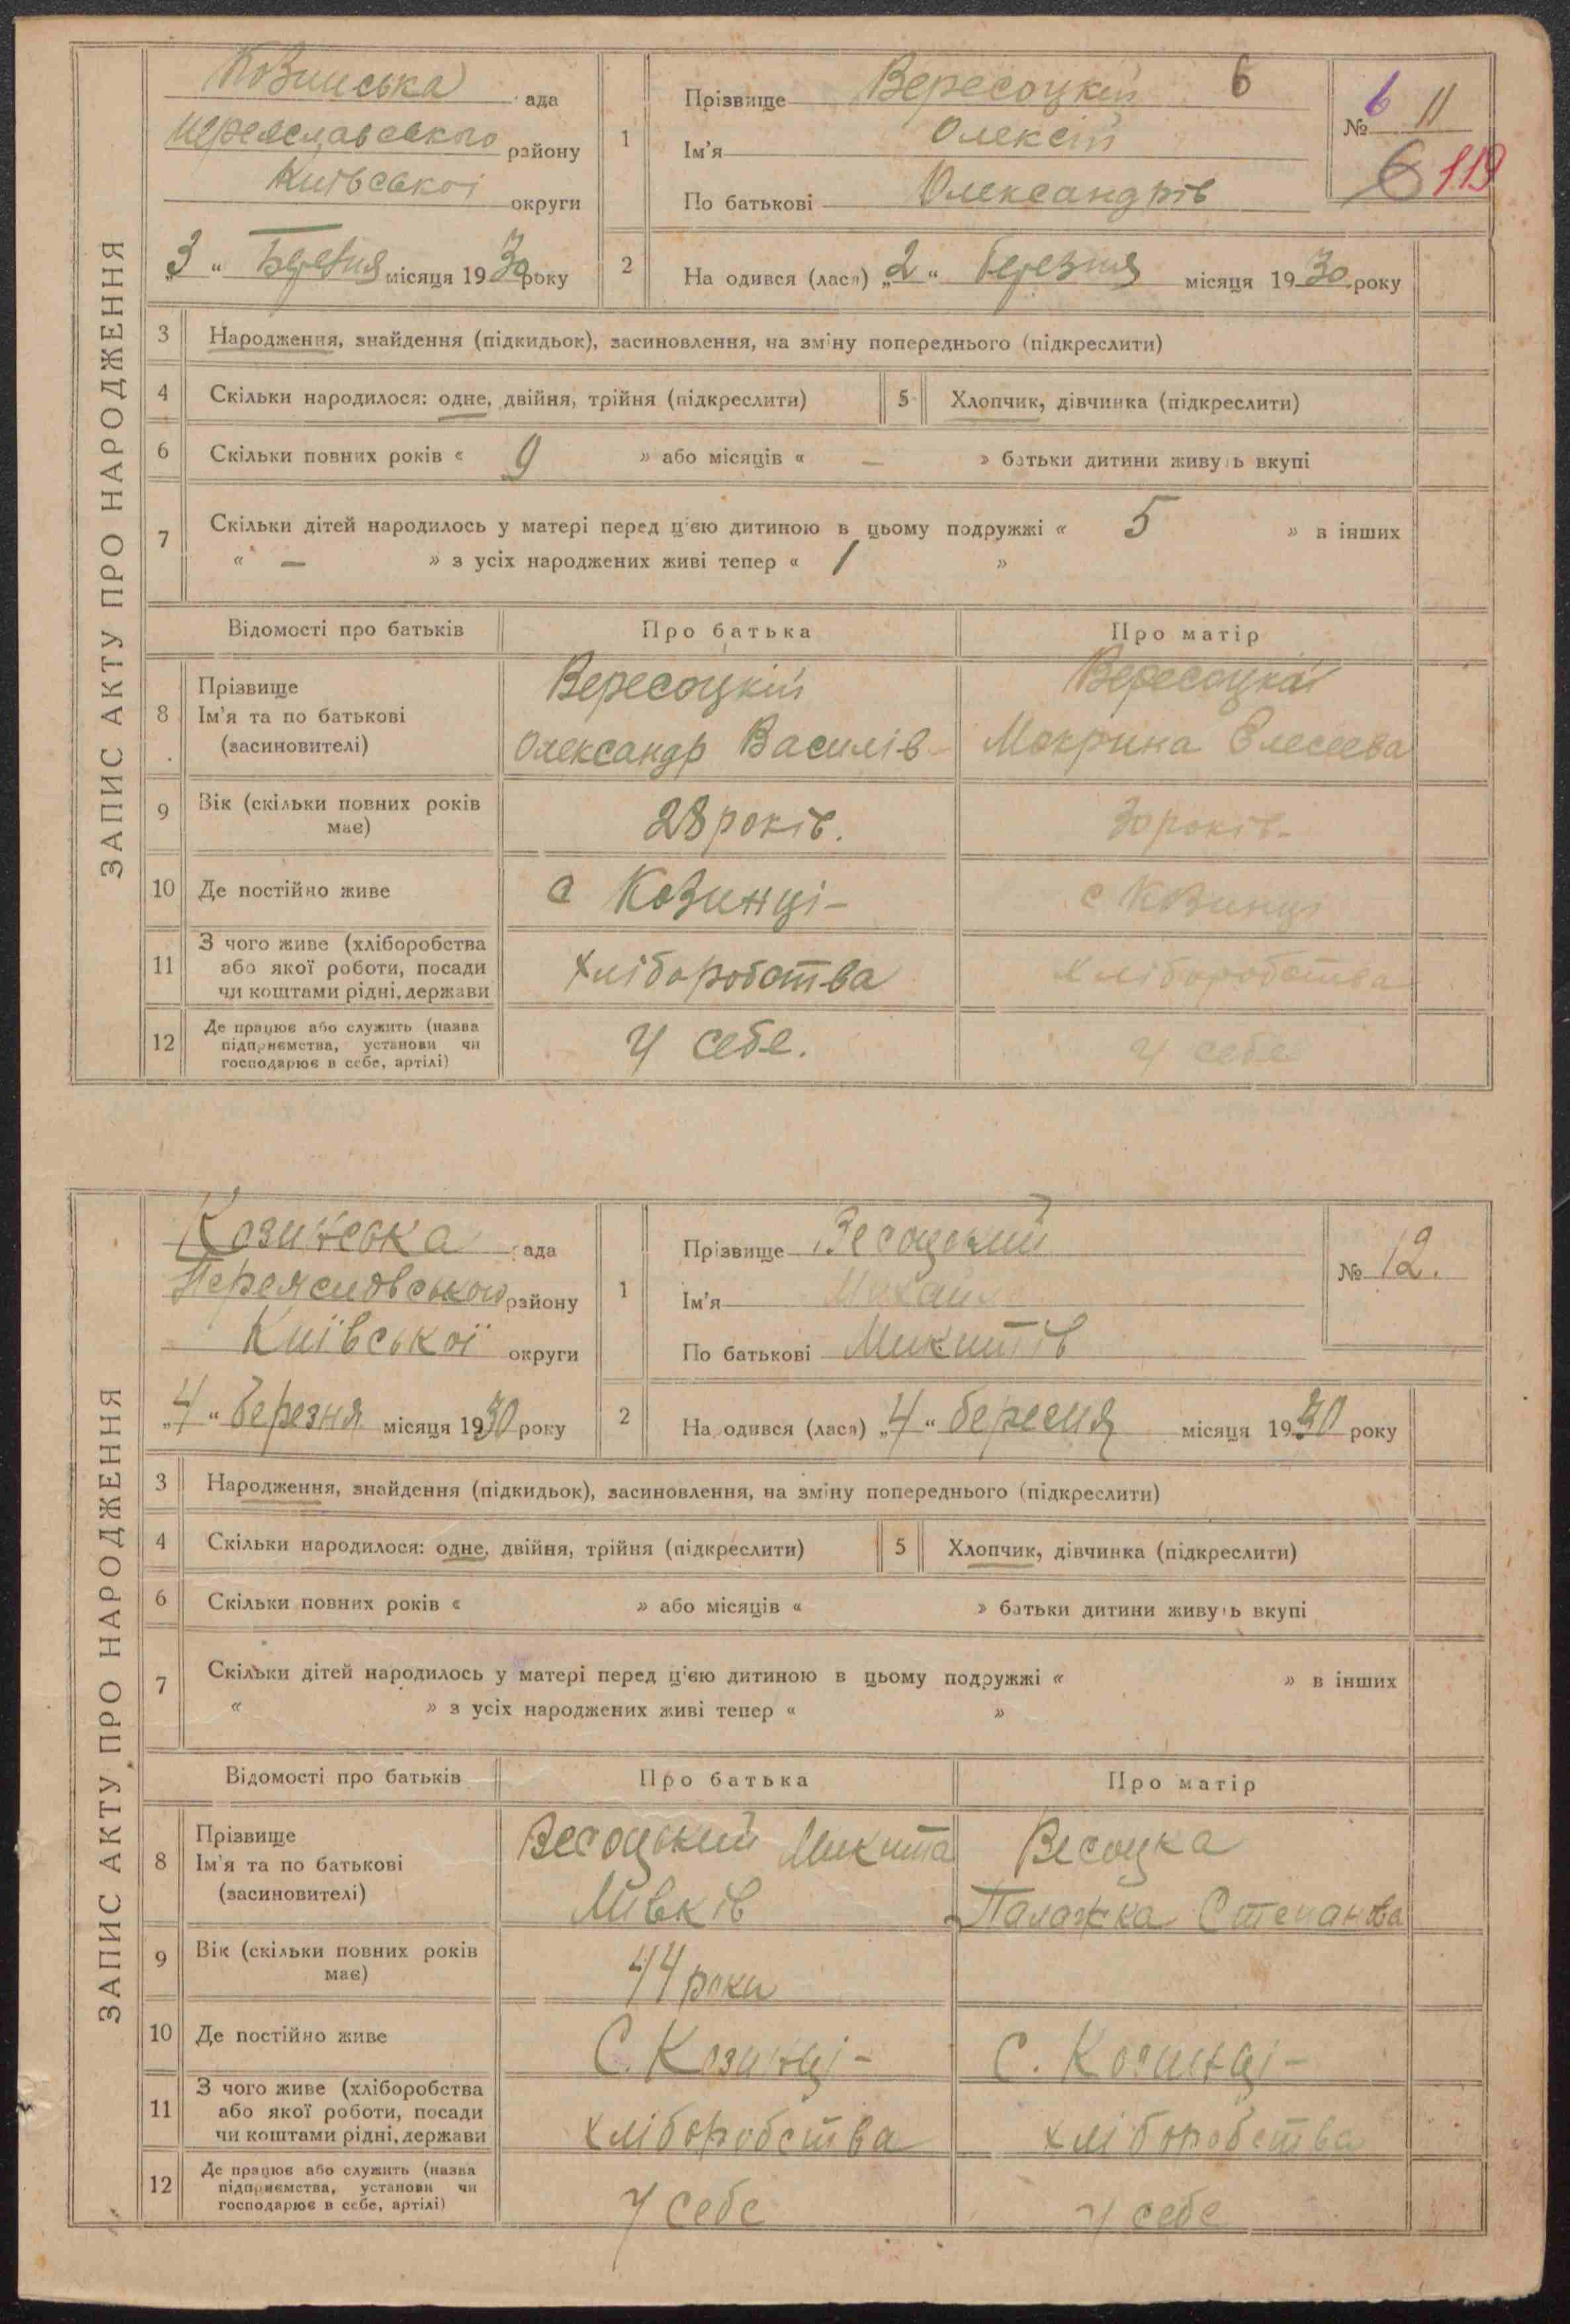 ЗАПИС АКТУ ПРО НАРОДЖЕННЯ
Козинська ада
Переяславського району
Київської округи
„3“ Березня місяця 1930 року
1
Прізвище Вересоцкий 6
Ім'я Олексій
По батькові Олександрів
№ 6 11
6 119
2 На одився (лася) „2“ березня місяця 1930 року
3 Народження, знайдення (підкидьок), засиновлення, на зміну попереднього (підкреслити)
4 Скільки народилося: одне, двійня, трійня (підкреслити) 5 Хлопчик, дівчинка (підкреслити)
6 Скільки повних років « 9 » або місяців « — » батьки дитини живуть вкупі
7 Скільки дітей народилось у матері перед ц'єю дитиною в цьому подружжі « 5 » в інших
« — » з усіх народжених живі тепер « 1 »
Відомості про батьків Про батька Про матір
8 Прізвище
Ім'я та по батькові
(засиновителі)
Вересоцкій
Олександр Василів
Вересоцкая
Мокрина Елесеева
9 Вік (скільки повних років
має)
28 років. 30 років
10 Де постійно живе с Козинці – с Козинці
11 З чого живе (хліборобства
або якої роботи, посади
чи коштами рідні, держави
хліборобства хліборобства
12 Де працює або служить (назва
підприємства, установи чи
господарює в себе, артілі)
У себе. У себе
ЗАПИС АКТУ ПРО НАРОДЖЕННЯ
Козинська ада
Переяславського району
Київської округи
„4“ березня місяця 1930 року
1
Прізвище Весоцький
Ім'я Михайло
По батькові Микитів
№ 12.
2 На одився (лася) „4“ березня місяця 1930 року
3 Народження, знайдення (підкидьок), засиновлення, на зміну попереднього (підкреслити)
4 Скільки народилося: одне, двійня, трійня (підкреслити) 5 Хлопчик, дівчинка (підкреслити)
6 Скільки повних років « » або місяців « » батьки дитини живуть вкупі
7 Скільки дітей народилось у матері перед ц'єю дитиною в цьому подружжі « » в інших
« » з усіх народжених живі тепер « »
Відомості про батьків Про батька Про матір
8 Прізвище
Ім'я та по батькові
(засиновителі)
Весоцький Микита
Левків
Весоцка
Палажка Степанова
9 Вік (скільки повних років
має)
44 роки
10 Де постійно живе С. Козинці – С. Козинці –
11 З чого живе (хліборобства
або якої роботи, посади
чи коштами рідні, держави
хліборобства хліборобства
12 Де працює або служить (назва
підприємства, установи чи
господарює в себе, артілі)
У себе у себе